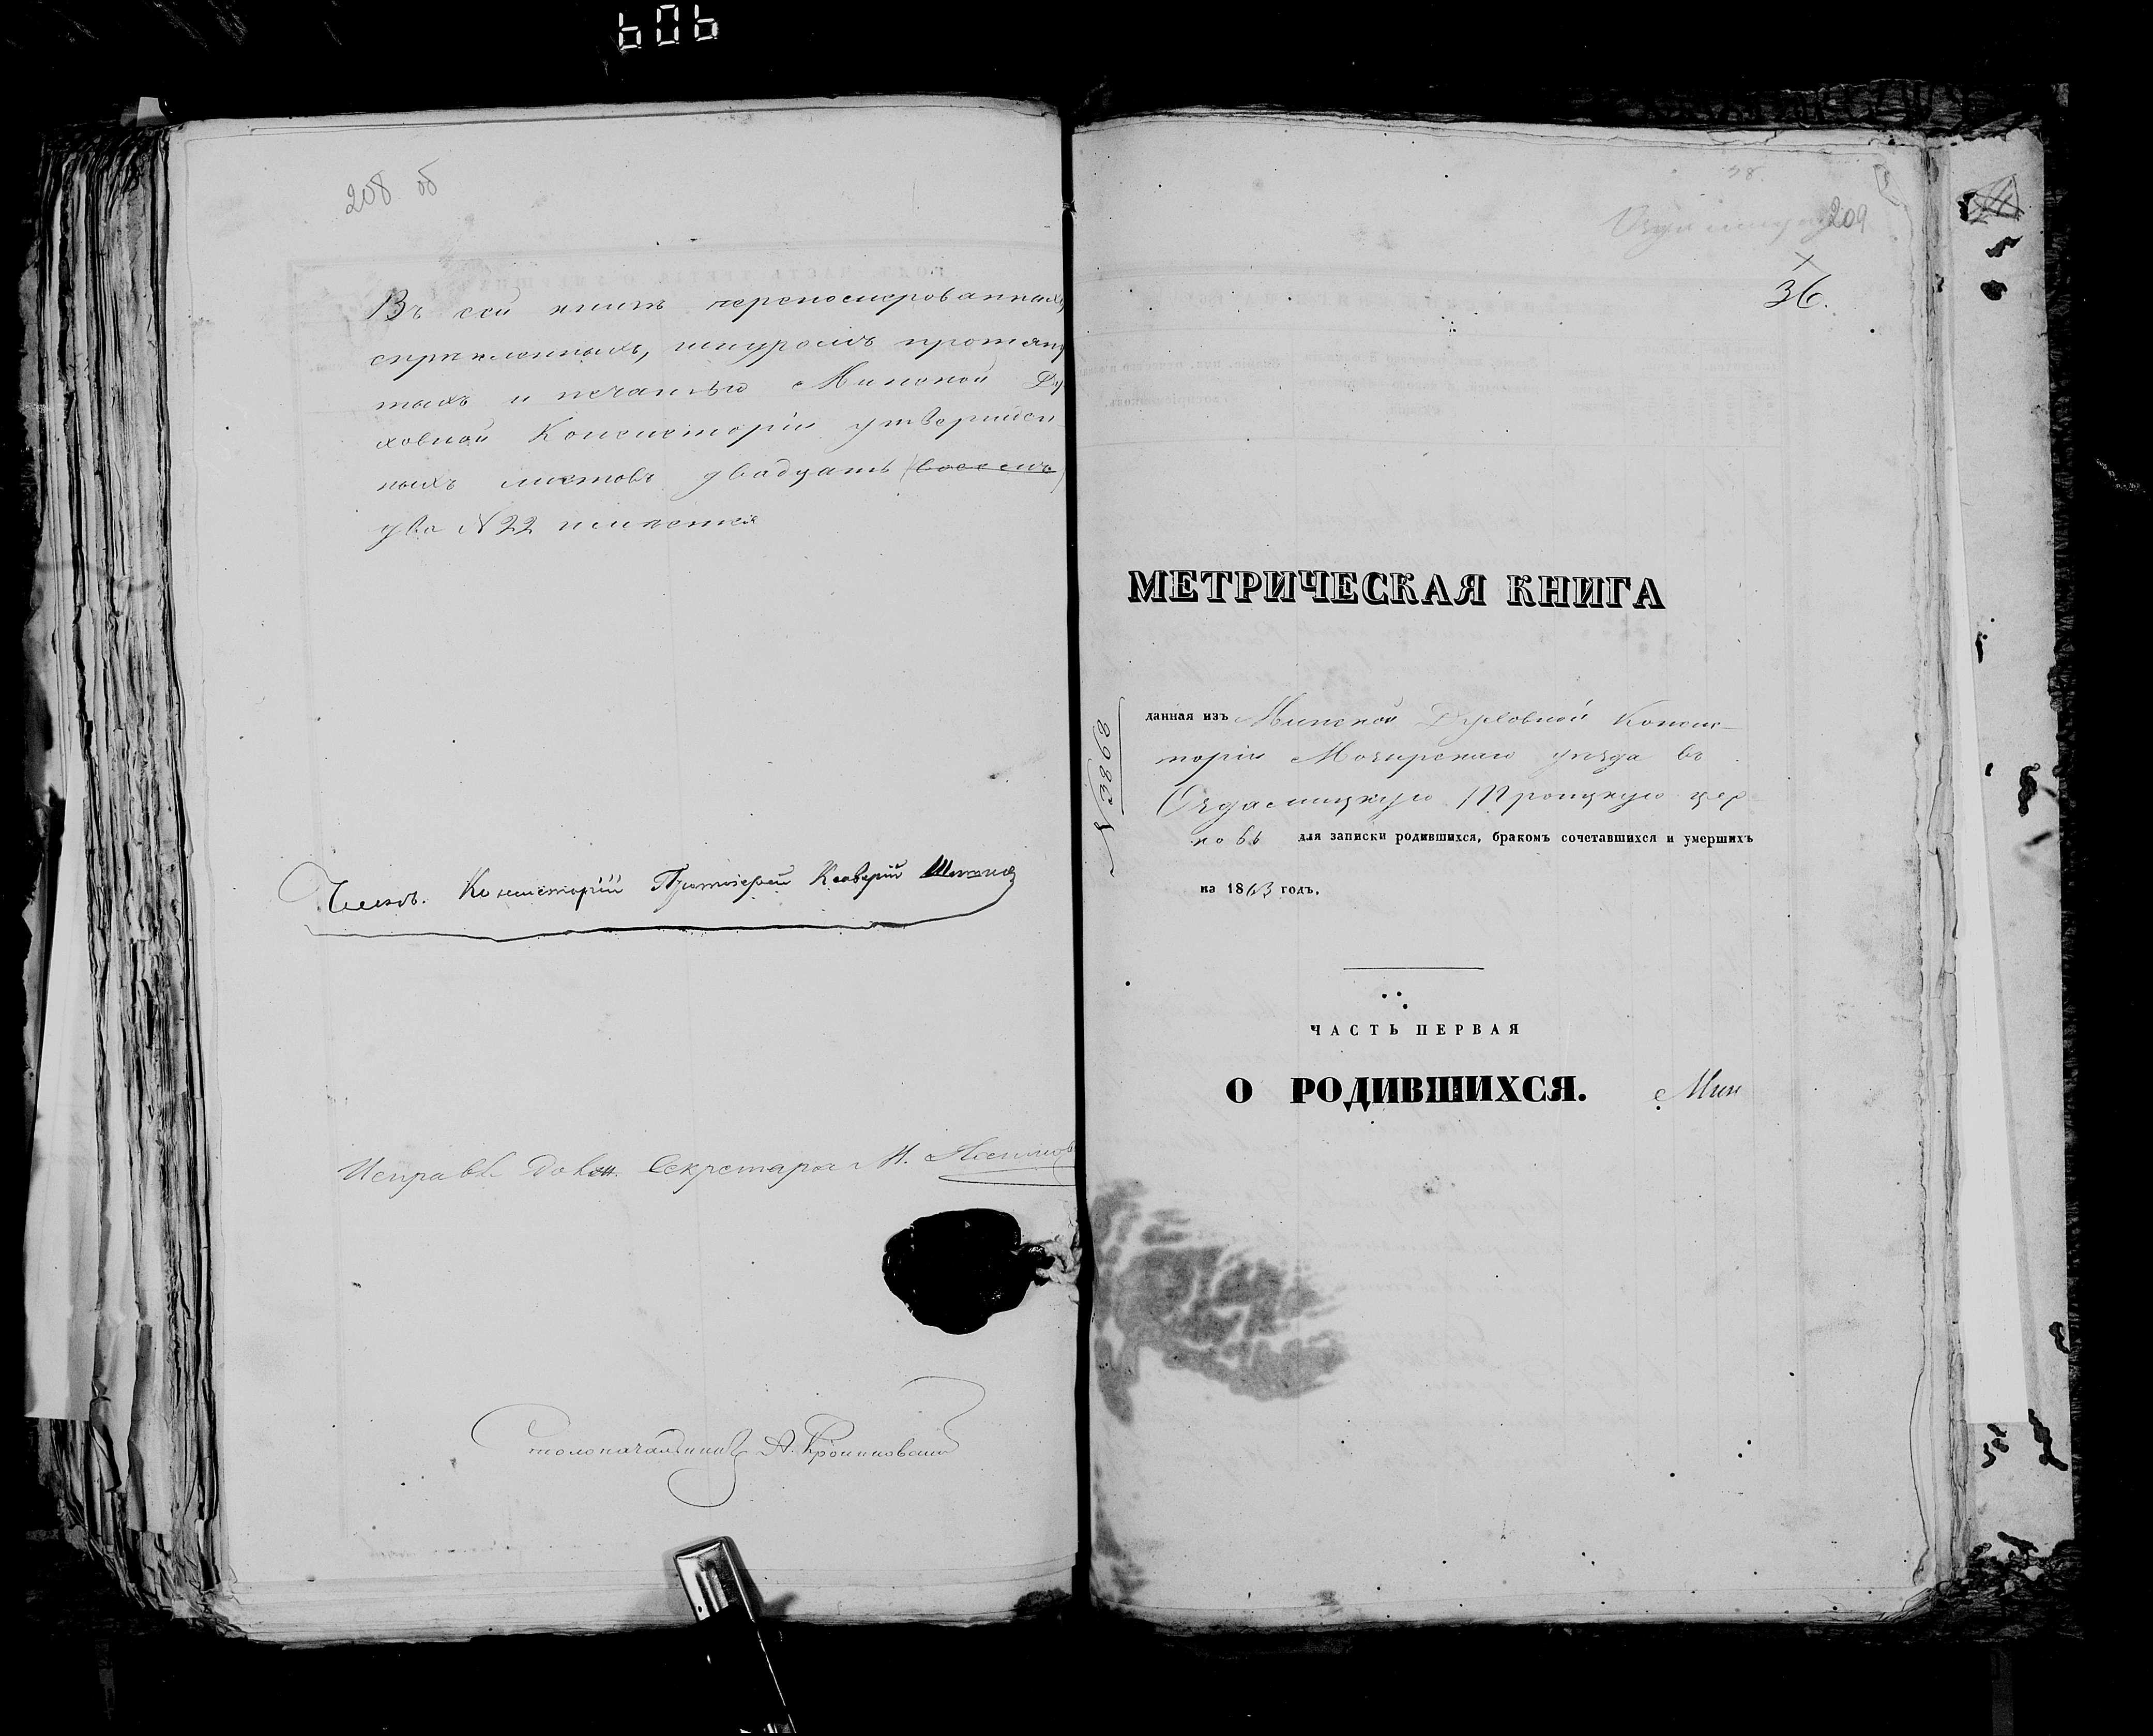 208 об
Въ сей книгѣ перенумерованныхъ,
скрѣпленныхъ, шнуромъ протяну
тыхъ и печатью Минской Ду
ховной Консисторіи утвержден
ныхъ листовъ двадцать (восемь)
два N 22 имѣется
Членъ Консисторіи Протоіерей Ксаверій
Исправл. Должн. Секретаря Н.
Столоначальникъ А.
209
36.
МЕТРИЧЕСКАЯ КНИГА
N 3868
данная изъ Минской Духовной Консис-
торіи Мозырскаго уѣзда въ
Оздамицкую Троицкую цер
ковь для записки родившихся, бракомъ сочетавшихся и умершихъ
на 1863 годъ.
ЧАСТЬ ПЕРВАЯ
О РОДИВШИХСЯ. Мин